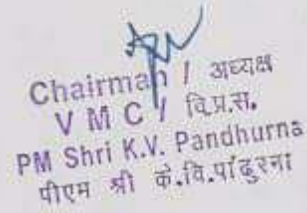 Chairman / अध्यक्ष
V M C / वि.प्र.स.
PM Shri K.V. Pandhurna
पीएम श्री के.वि.पांढुरना